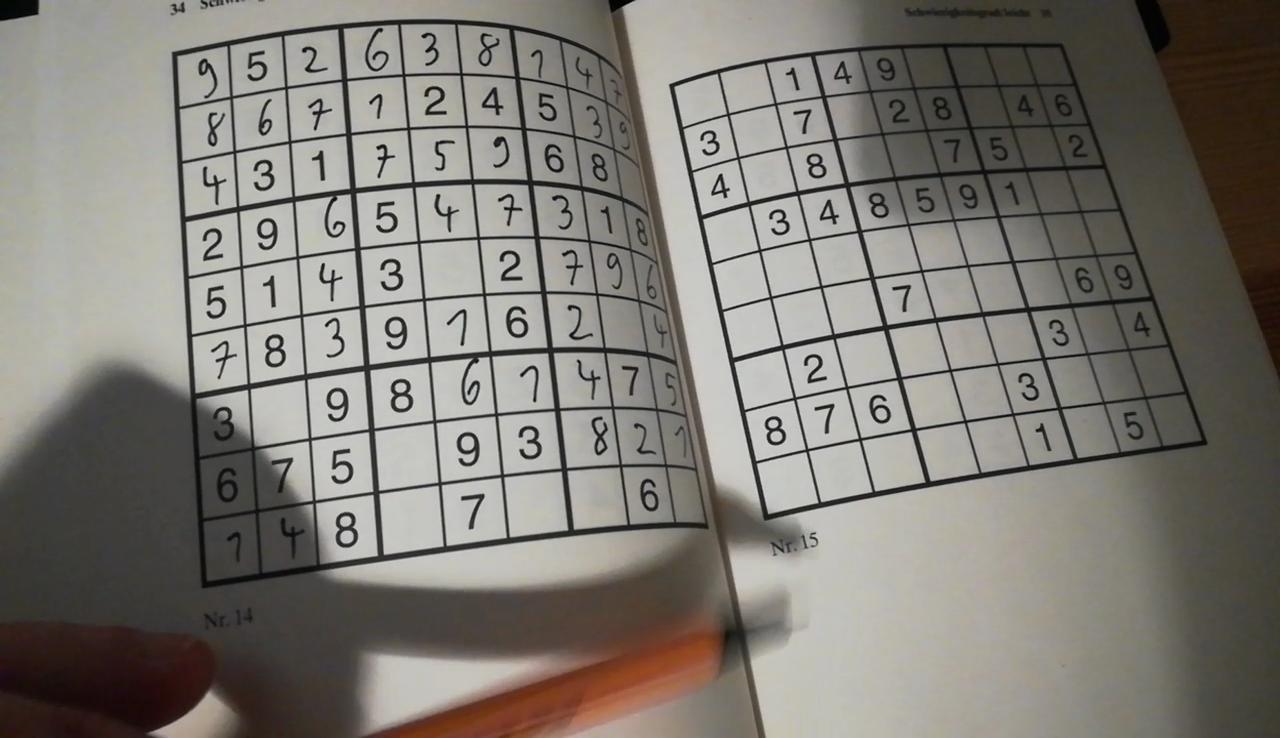 34
9 5 2 6 3 8 1 4 7
8 6 7 1 2 4 5 3 9
4 3 1 7 5 9 6 8
2 9 6 5 4 7 3 1 8
5 1 4 3 2 7 9 6
7 8 3 9 1 6 2 4
3 9 8 6 1 4 7 5
6 7 5 9 3 8 2 1
1 4 8 7 6
Nr. 14
Schwierigkeitsgrad: leicht
1 4 9
3 7 2 8 4 6
4 8 7 5 2
3 4 8 5 9 1
7 6 9
2 3 4
8 7 6 3
1 5
Nr. 15